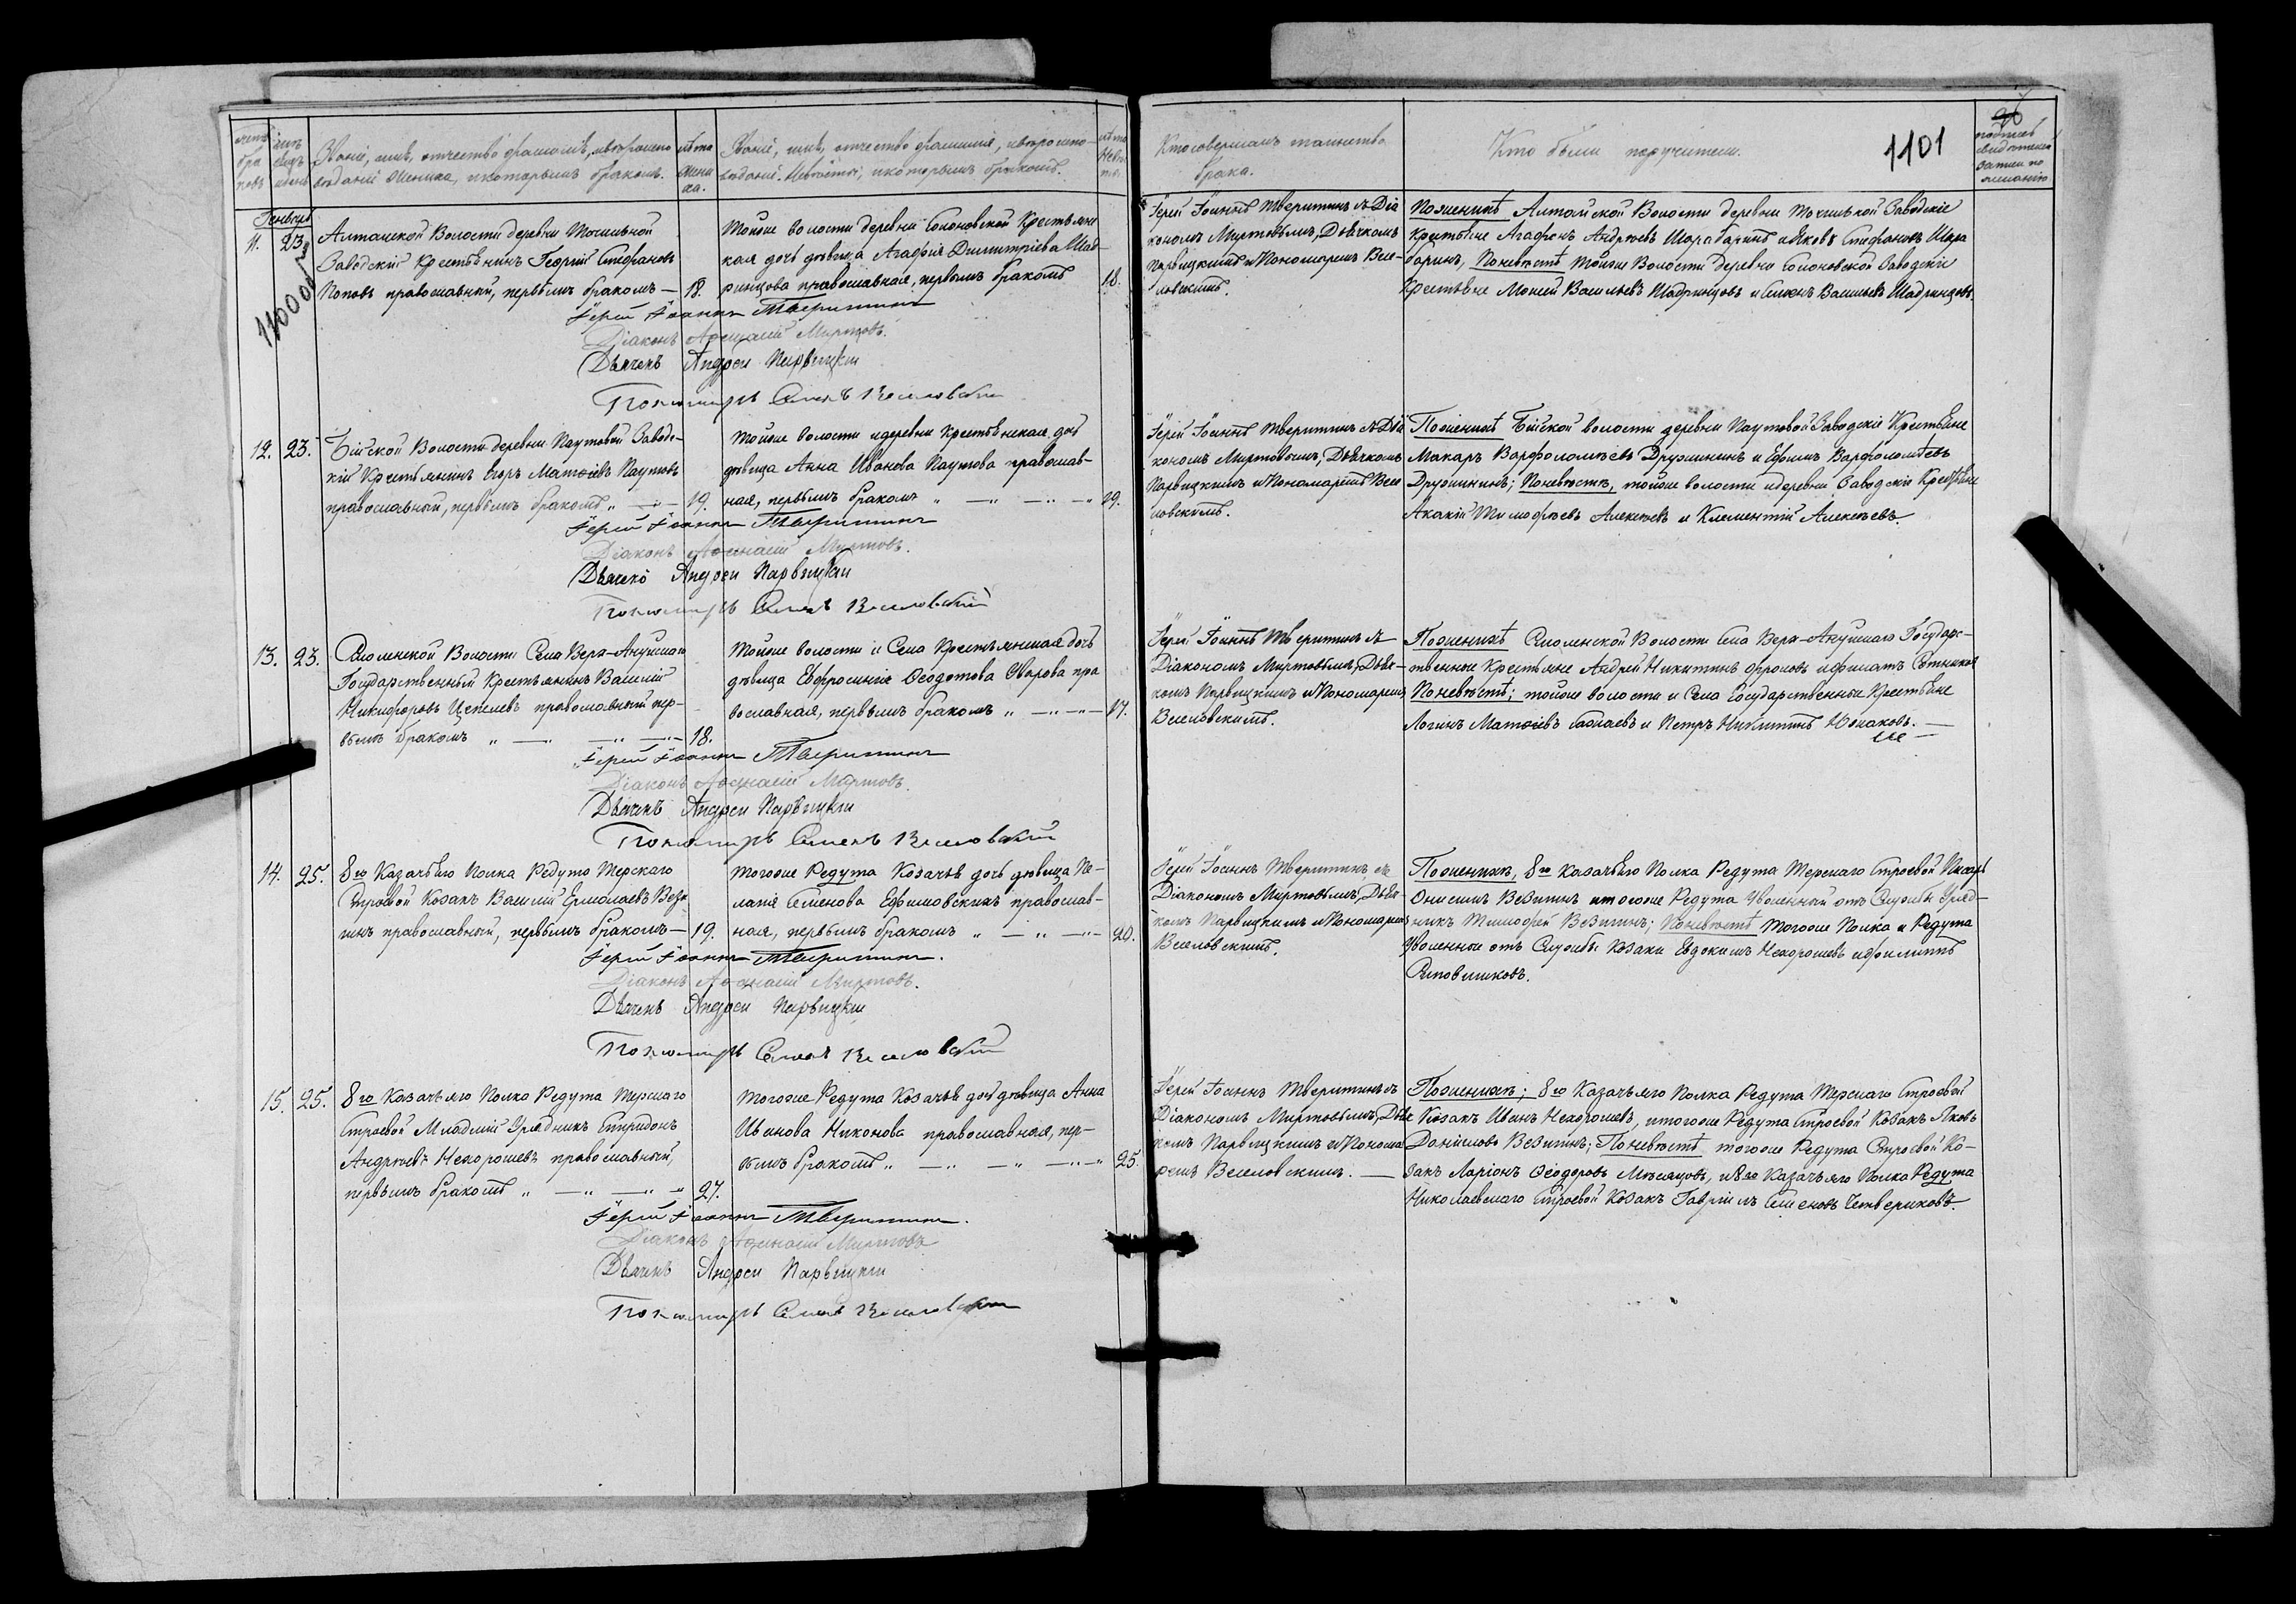 1101
счетъ браковъ
Званіе, имя, отчество, фамилія, и вѣроиспо-
вѣданіе жениха, и которымъ бракомъ.
лѣта жени ха.
Званіе, имя, отчество фамилія, и вѣроиспо-
вѣданіе невѣсты, и которымъ бракомъ.
лѣта невѣ сты
Кто совершалъ таинство
брака.
Кто были поручители.
подпись
свидѣтелей
записи по
желанію
Генварь
11. 23.
Алтайской Волости деревни Точильной
Заводскій Крестьянинъ Георгій Стефановъ
Поповъ православный, первымъ бракомъ — 18.
Тойже волости деревни Солоновской Крестьян
ская дочь дѣвица Агафія Димитріева Шад-
ринцова православная, первымъ бракомъ 18.
Іерей Іоаннъ Тверитинъ съ Діа
кономъ Миртовымъ, Дьячкомъ
Парвицкимъ и Пономаремъ Весе-
ловскимъ.
По женихѣ Алтайской Волости деревни Точильной Заводскіе
Крестьяне Агафонъ Андреевъ Шарабаринъ и Яковъ Стефановъ Шара
баринъ, По невѣстѣ тойже Волости деревни Солоновской Заводскіе
Крестьяне Мокей Васильевъ Шадринцовъ и Семенъ Васильевъ Шадринцовъ.
Іерей Іоаннъ Тверитинъ
Діаконъ Афанасій Миртовъ.
Дьячекъ Андрей Парвицкій
Пономарь Семенъ Веселовскій
12. 23.
Бійской Волости деревни Паутовой Заводс-
кій Крестьянинъ Егоръ Матѳіевъ Паутовъ
православный, первымъ бракомъ „ — „ — 19.
Тойже волости и деревни Крестьянская дочь
дѣвица Анна Иванова Паутова православ-
ная, первымъ бракомъ „ — „ — „ — „ 19.
Іерей Іоаннъ Тверитинъ съ Діа
кономъ Миртовымъ, Дьячкомъ
Парвицкимъ и Пономаремъ Весе
ловскимъ.
По женихѣ Бійской волости деревни Паутовой Заводскіе Крестьяне
Макаръ Варфоломѣевъ Дружининъ и Ефимъ Варфоломѣевъ
Дружининъ; По невѣстѣ, тойже волости и деревни Заводскіе Крестьяне
Акакій Тимофѣевъ Алексѣевъ и Климентій Алексѣевъ.
Іерей Іоаннъ Тверитинъ
Діаконъ Афанасій Миртовъ.
Дьячекъ Андрей Парвицкій
Пономарь Семенъ Веселовскій
13. 23.
Смоленской Волости Села Верх-Ануйскаго
Государственный Крестьянинъ Василій
Никифоровъ православный пер-
вымъ бракомъ „ — „ — „ — „ — 18.
Тойже волости и Села Крестьянская дочь
дѣвица Евфросинія Ѳеодотова Уварова пра
вославная, первымъ бракомъ „ — „ — „ — 17.
Іерей Іоаннъ Тверитинъ съ
Діакономъ Миртовымъ, Дьяч-
комъ Парвицкимъ и Пономаремъ
Веселовскимъ.
По женихѣ Смоленской Волости Села Верх-Ануйскаго Государс-
твенные Крестьяне Андрей Никитинъ Фроловъ и Филатъ
По невѣстѣ; тойже волости и Села Государственные Крестьяне
Логинъ Матѳіевъ и Петръ Никитинъ
Іерей Іоаннъ Тверитинъ
Діаконъ Афанасій Миртовъ.
Дьячекъ Андрей Парвицкій
Пономарь Семенъ Веселовскій
14. 25.
8го Казачьяго Полка Редута Терскаго
Строевой Козакъ Василій Ермолаевъ Вези-
гинъ православный, первымъ бракомъ — 19.
Тогоже Редута Козачья дочь дѣвица Пе-
лагія Семенова Ефимовскихъ православ-
ная, первымъ бракомъ „ — „ — „ — 20.
Іерей Іоаннъ Тверитинъ съ
Діакономъ Миртовымъ, Дьяч-
комъ Парвицкимъ и Пономаремъ
Веселовскимъ.
По женихѣ, 8го Казачьяго Полка Редута Терскаго Строевой Писарь
Онисимъ Везигинъ и тогоже Редута Уволенный отъ Службы Уряд-
никъ Тимофей Везигинъ; По невѣстѣ Тогоже Полка и Редута
Уволенные отъ Службы Козаки Евдокимъ Нехорошевъ и Филиппъ
Іерей Іоаннъ Тверитинъ.
Діаконъ Афанасій Миртовъ.
Дьячекъ Андрей Парвицкій
Пономарь Семенъ Веселовскій
15. 25.
8го Казачьяго Полка Редута Терскаго
Строевой Младшій Урядникъ Спиридонъ
Андреевъ Нехорошевъ православный,
первымъ бракомъ „ — „ — „ — „ 27.
Тогоже Редута Козачья дочь дѣвица Анна
Иванова Никонова православная, пер-
вымъ бракомъ „ — „ — „ — „ — „ 25.
Іерей Іоаннъ Тверитинъ съ
Діакономъ Миртовымъ, Дьяч
комъ Парвицкимъ и Понома-
ремъ Веселовскимъ. —
По женихѣ; 8го Казачьяго Полка Редута Терскаго Строевой
Козакъ Иванъ Нехорошевъ, и тогоже Редута Строевой Козакъ Яковъ
Даниловъ Везигинъ; По невѣстѣ тогоже Редута Строевой Ко-
закъ Ларіонъ Ѳеодоровъ Мѣсяцовъ, и 8го Казачьяго Полка Редута
Николаевскаго Строевой Козакъ Гавріилъ Семеновъ Четвериковъ.
Іерей Іоаннъ Тверитинъ.
Діаконъ Афанасій Миртовъ
Дьячекъ Андрей Парвицкій
Пономарь Семенъ Веселовскій